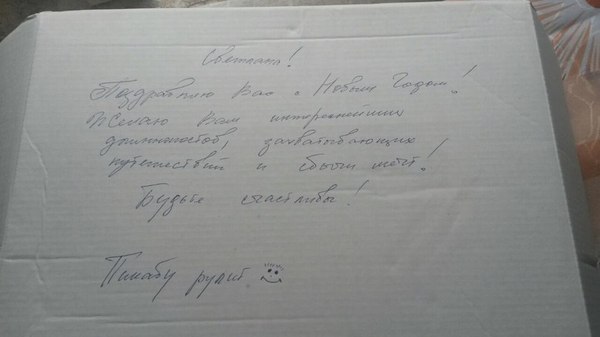 Светлана!
Поздравляю Вас с Новым Годом!
Желаю Вам интереснейших
захватывающих
путешествий и сбычи мечт!
Будьте счастливы!
Пикабу рулит.